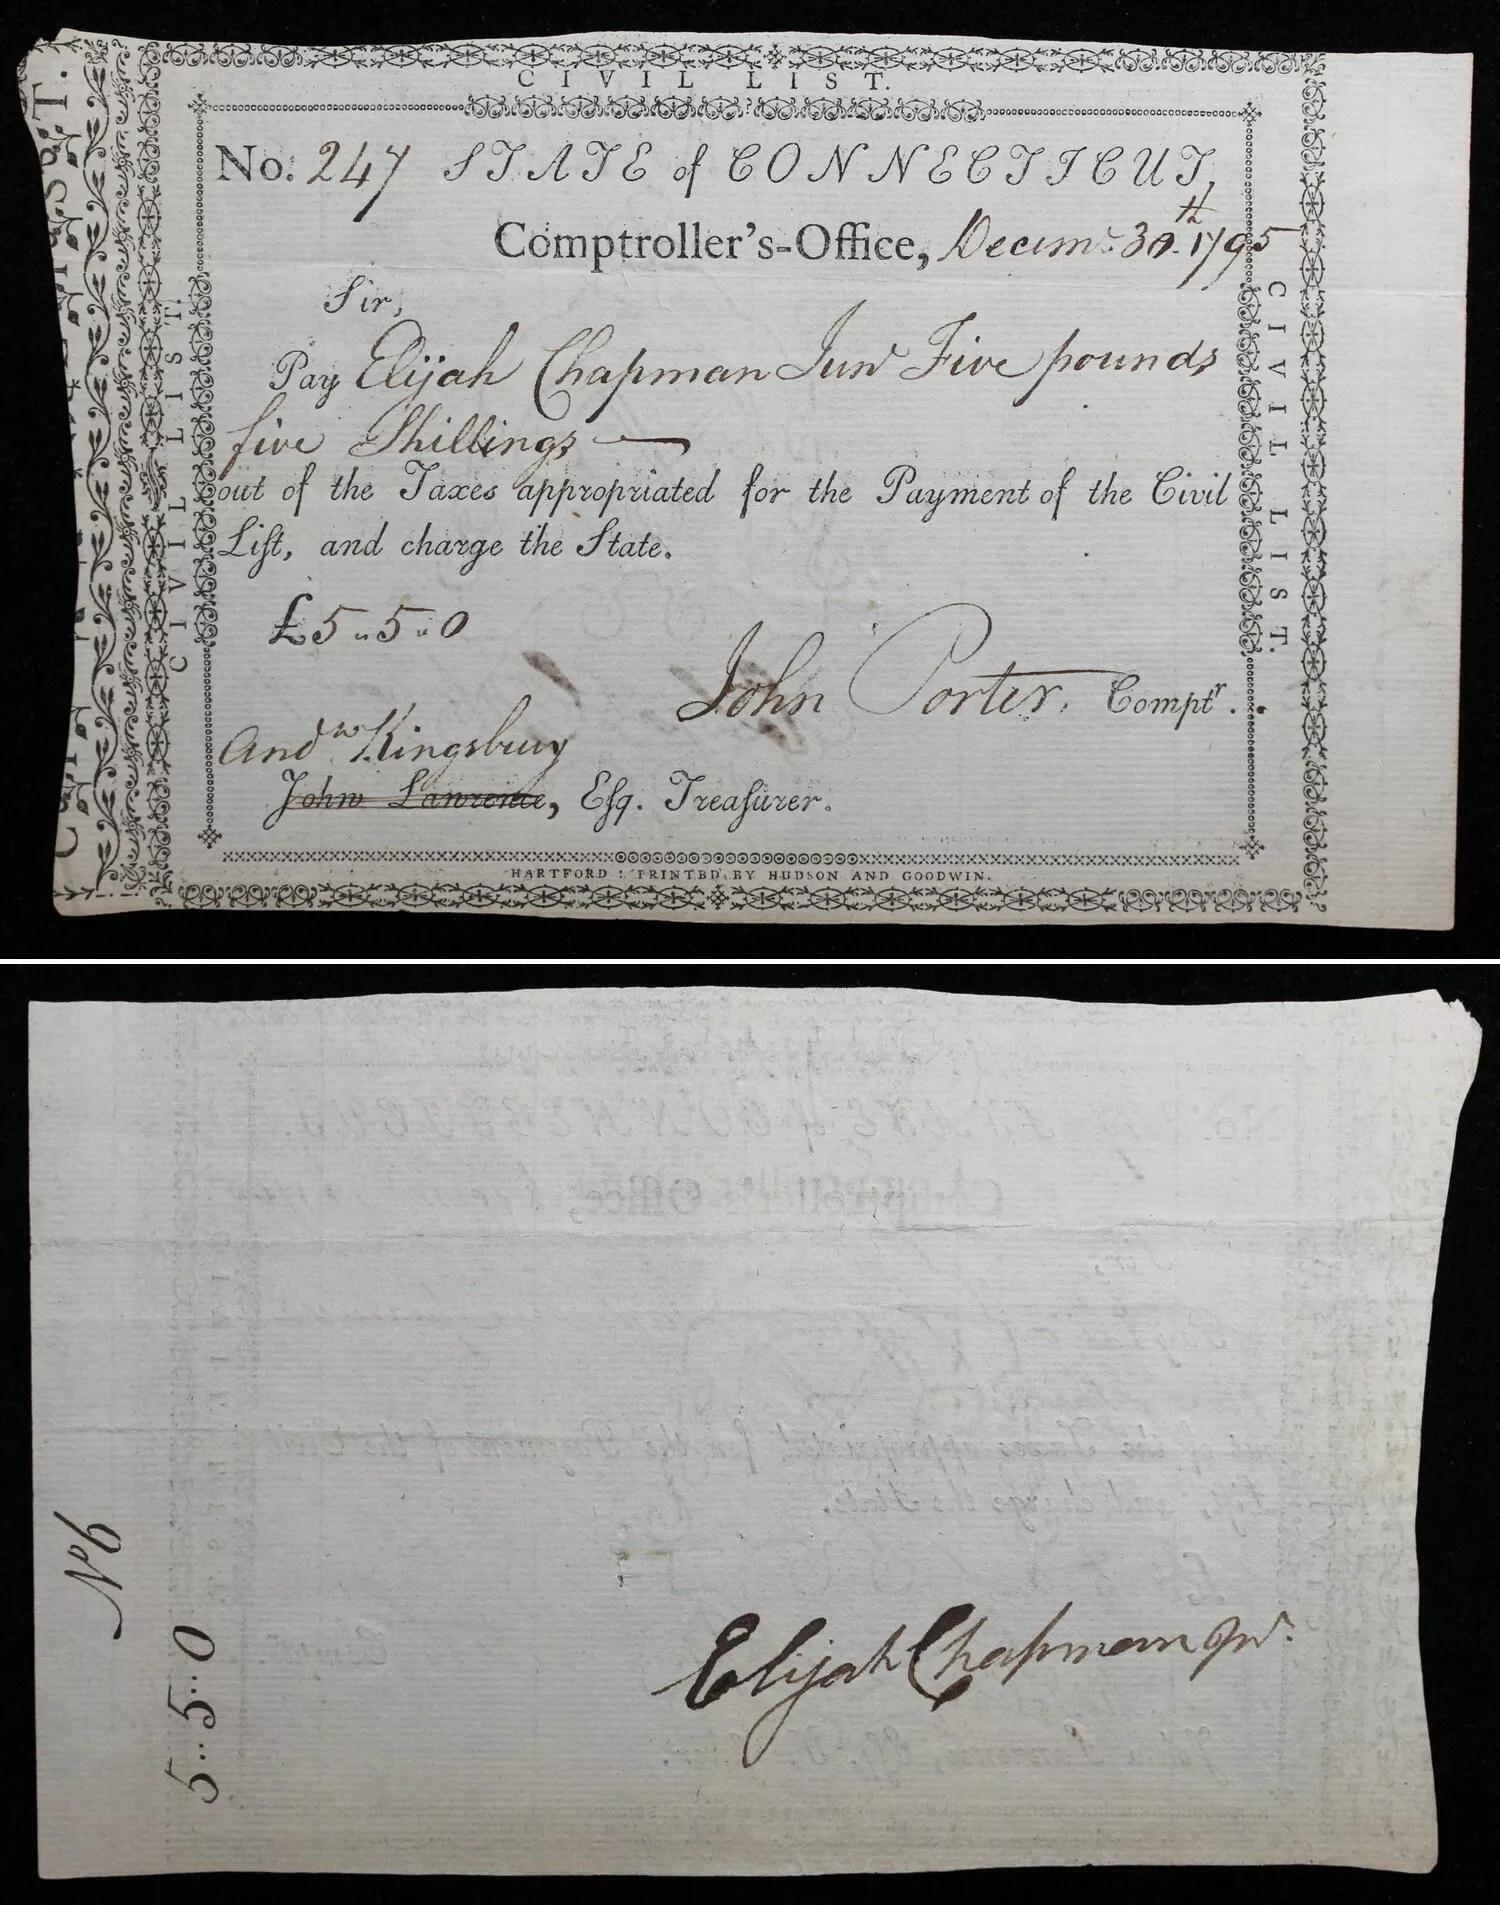 CIVIL LIST.
No. 247 STATE of CONNECTICUT,
Comptroller's-Office, Decemr 30th 1795
Sir,
Pay Elijah Chapman Junr Five pounds
five Shillings
out of the Taxes appropriated for the Payment of the Civil
Liſt, and charge the State.
£5-5-0
John Porter, Comptr.
Andw Kingsbury
John Lawrence, Eſq. Treaſurer.
HARTFORD: PRINTED BY HUDSON AND GOODWIN.
CIVIL LIST.
CIVIL LIST.
No 6
5-5-0
Elijah Chapman Jnr.